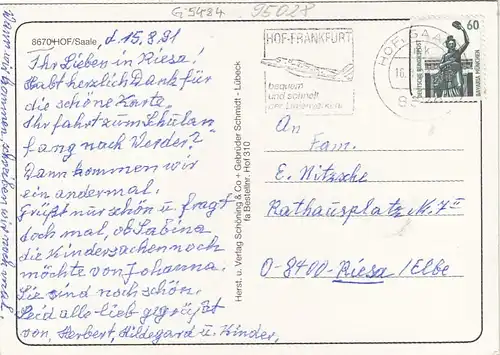 G 5484 95028
8670 HOF/Saale, d. 15.8.91
Ihr Lieben in Riesa!
Habt herzlich Dank für
die schöne Karte.
Ihr fahrt zum Schulan
fang nach Werder?
Dann kommen wir
ein andermal.
Grüßt nur schön u. fragt
doch mal, ob Sabina
die Kindersachen noch
möchte von Johanna.
Sie sind noch schön.
Seid alle lieb gegrüßt
von, Herbert, Hildegard u. Kinder,
Wann wir kommen, schreiben wir noch mal.
Herst. u. Verlag Schöning & Co + Gebrüder Schmidt - Lübeck
fa Bestellnr. Hof 310
HOF-FRANKFURT
bequem
und schnell
per Linienverkehr
HOF, SAALE
16.
60
DEUTSCHE BUNDESPOST
BAVARIA MÜNCHEN
An
Fam.
E. Nitzsche
Rathausplatz. N. 7 II
O-8400-Riesa/Elbe